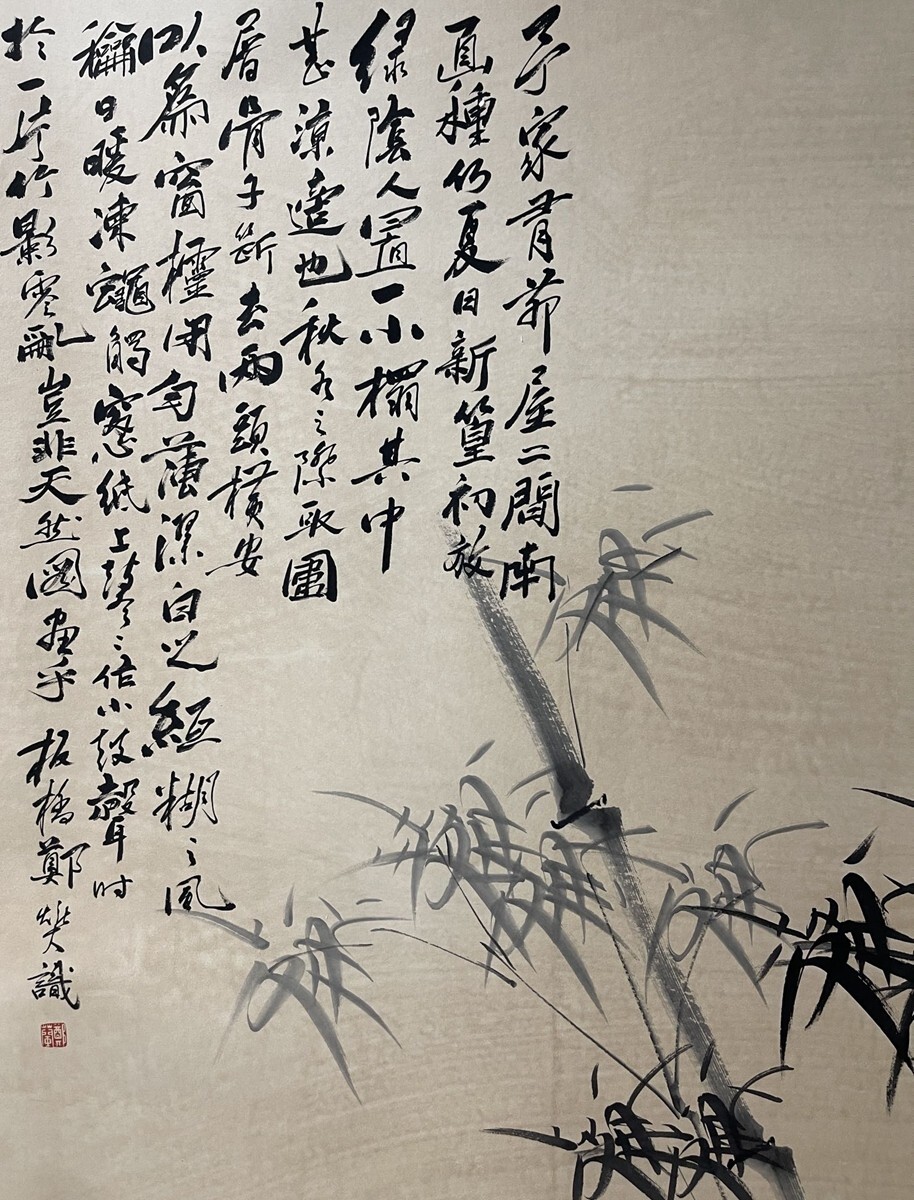 予家有茆屋二間南
面種竹夏日新篁初放
綠陰人置一小榻其中
甚涼適也秋冬之際取圍
屏骨子斷去兩頭橫安
以為窗欞用勻薄潔白之紙糊之風
龢日暖凍蠅觸窻紙上鼕〻作小鼓聲時
於一片竹影零亂豈非天然圖畫乎 板橋鄭燮識